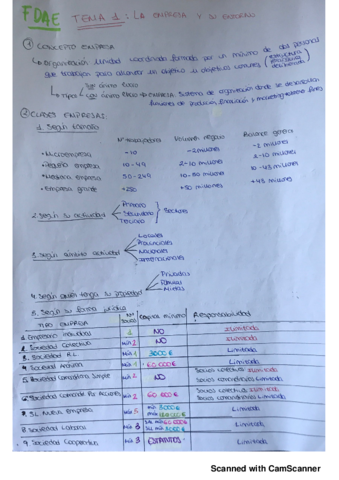 FDAE
TEMA 1: LA EMPRESA Y SU ENTORNO
① CONCEPTO EMPRESA
organización. Unidad coordinada formada por un mínimo de dos personas
que trabajan para alcanzar un objetivo u objetivos comunes
② CLASES EMPRESAS:
1. Según tamaño
Nº trabajadores Volumen negocio Balance general
• Microempresa -10 -2 millones -2 millones
• Pequeña empresa 10-49 2-10 millones 2-10 millones
• Mediana empresa 50-249 10-50 millones 10-43 millones
• Empresa grande +250 +50 millones +43 millones
2. Según su actividad
Primario
Secundario
Terciario
Sectores
3. Según ámbito actividad
Locales
Provinciales
Nacionales
Internacionales
4. Según quién tenga su propiedad
Privadas
Públicas
Mixtas
5. Según su forma jurídica
TIPO EMPRESA Nº socios Capital mínimo Responsabilidad
1. Empresario individual 1 NO Ilimitada
2. Sociedad Colectiva mín 2 NO Ilimitada
3. Sociedad R.L. mín 1 3000 € Limitada
4. Sociedad Anónima mín 1 60.000 € Limitada
5. Sociedad Comanditaria Simple mín 2 NO Socios colectivos Ilimitada
Socios comanditarios Limitada
6. Sociedad Comandit. Por Acciones mín 2 60 000 € Socios colectivos Ilimitada
Socios comanditarios Limitada
7. SL Nueva Empresa mín 3000 €
Limitada
8. Sociedad Laboral mín 3 Limitada
9. Sociedad Cooperativa mín 3 ESTATUTOS Limitada
Scanned with CamScanner